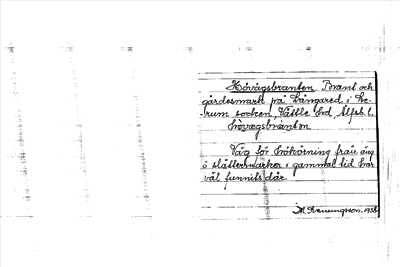 Hövägsbranten Brant och
gärdesmark på Långared i Le-
rum socken, Vättle hd, Älfsb. l.
hö̀vægsbránten
Väg för hökörning från äng
o slåttermarker i gammal tid har
väl funnits där.
1938